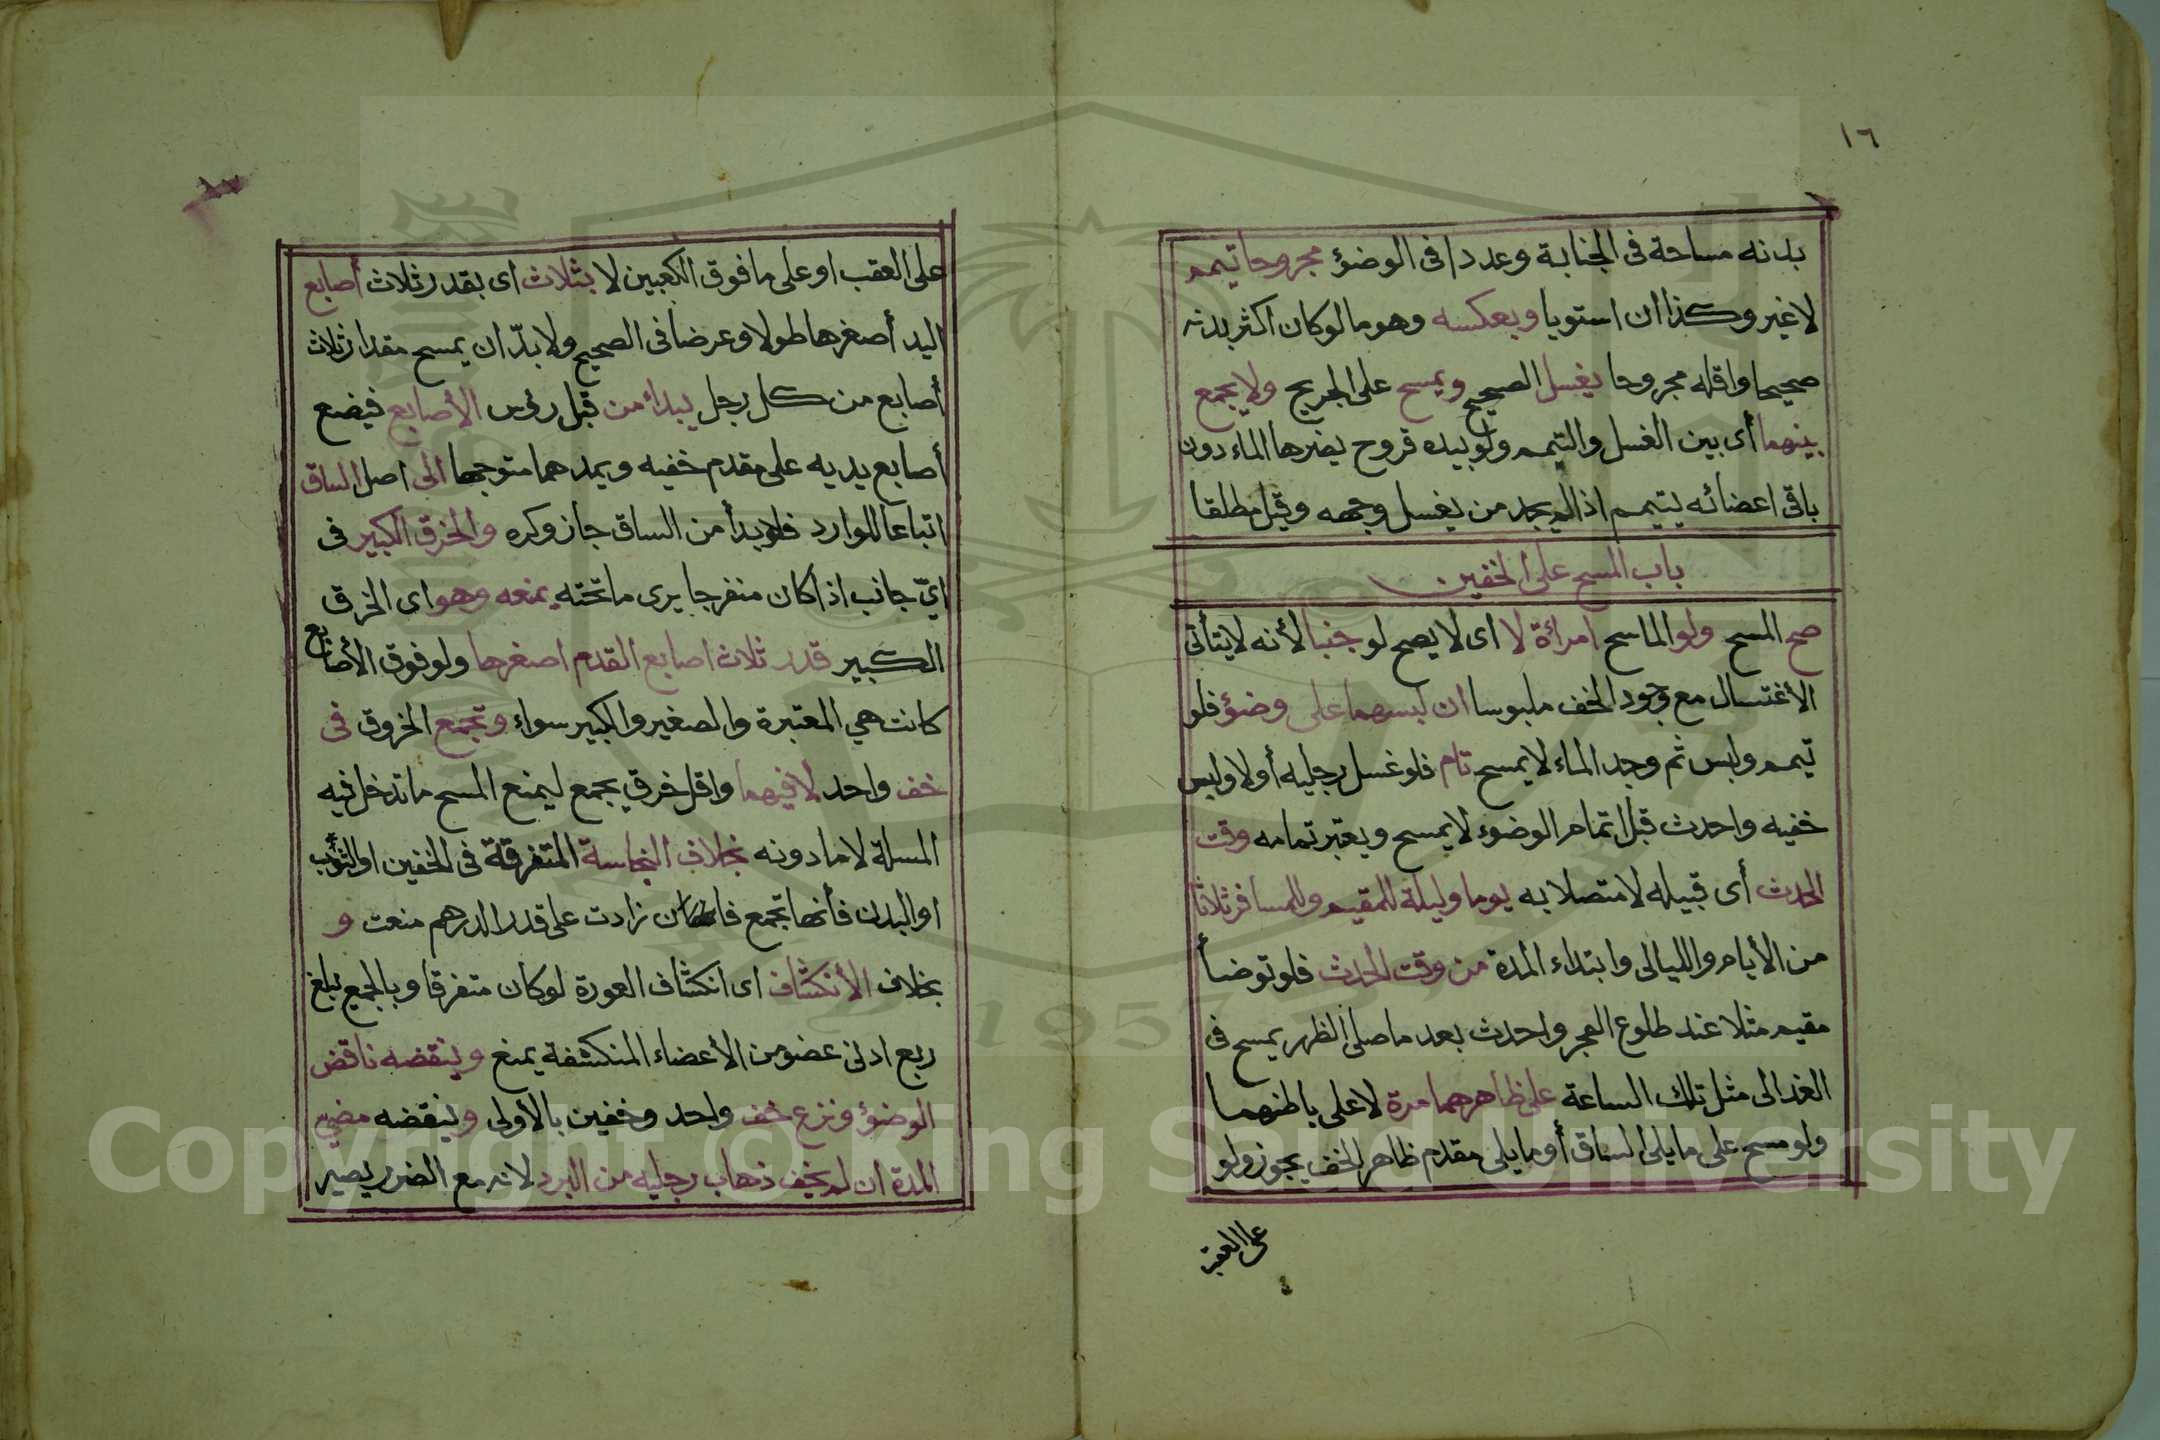 ١٦
بدنه مساحة فى الجنابة وعددا فى الوضؤ مجروحا تيمم
لاغير وكذا ان استويا وبعكسه وهو ما لوكان اكثر بدنه
صحيحا واقله مجروحا يغسل الصحيح ويمسح على الجريح ولا يجمع
بينهما أى بين الغسل والتيمم ولو بيده قروح يضرها الماء دون
باقى اعضائه يتيمم اذا لم يجد من يغسل وجهه وقيل مطلقا
باب المسح على الخفين
صح المسح ولو الماسح امرأة لا اى لا يصح لو جنبا لأنه لا يتأتى
الأغتسال مع وجود الخف ملبوسا ان لبسهما على وضؤ فلو
تيمم ولبس ثم وجد الماء لا يمسح تام فلو غسل رجليه أولا ولبس
خفيه واحدث قبل اتمام الوضوء لا يمسح ويعتبر تمامه وقت
الحدث أى قبيله لا متصلا به يوما وليلة للمقيم وللمسافر ثلاثا
من الأيام والليالى وابتداء المدة من وقت الحدث فلو توضأ
مقيم مثلا عند طلوع الفجر واحدث بعد ما صلى الظهر يمسح فى
الغد الى مثل تلك الساعة على ظاهرهما مرة لا على باطنهما
ولو مسح على ما يلى الساق أو ما يلى مقدم ظاهر الخف يجوز ولو
على العقب
على العقب او على ما فوق الكعبين لا بثلاث اى بقدر ثلاث أصابع
اليد أصغرها طولا وعرضا فى الصحيح ولا بدّ ان يمسح مقدار ثلاث
أصابع من كل رجل يبداء من قبل رؤس الأصابع فيضع
أصابع يديه على مقدم خفيه ويمدهما متوجها الى اصل الساق
اتباعا للوارد فلو بدأ من الساق جاز وكره والخرق الكبير فى
ايّ جانب اذا كان منفرجا يرى ما تحته يمنعه وهو اى الخرق
الكبير قدر ثلاث اصابع القدم اصغرها ولو فوق الأصابع
كانت هي المعتبرة والصغير والكبير سواء وتجمع الخروق فى
خف واحد لا فيهما واقل خرق يجمع ليمنع المسح ما تدخل فيه
المسلة لا ما دونه بخلاف النجاسة المتفرقة فى الخفين او الثوب
او البدن فأنها تجمع فان زادت على قدر الدرهم منعت و
بخلاف الأنكشاف اى انكشاف العورة لوكان متفرقا وبالجمع بلغ
ربع ادنى عضو من الأعضاء المنكشفة يمنع وينقضه ناقض
الوضؤ ونزع خف واحد وخفين بالأولى وينقضه مضيّ
المدة ان لم يخف ذهاب رجليه من البرد لانه مع الضرر يصير
1957
Copyright © King Saud University